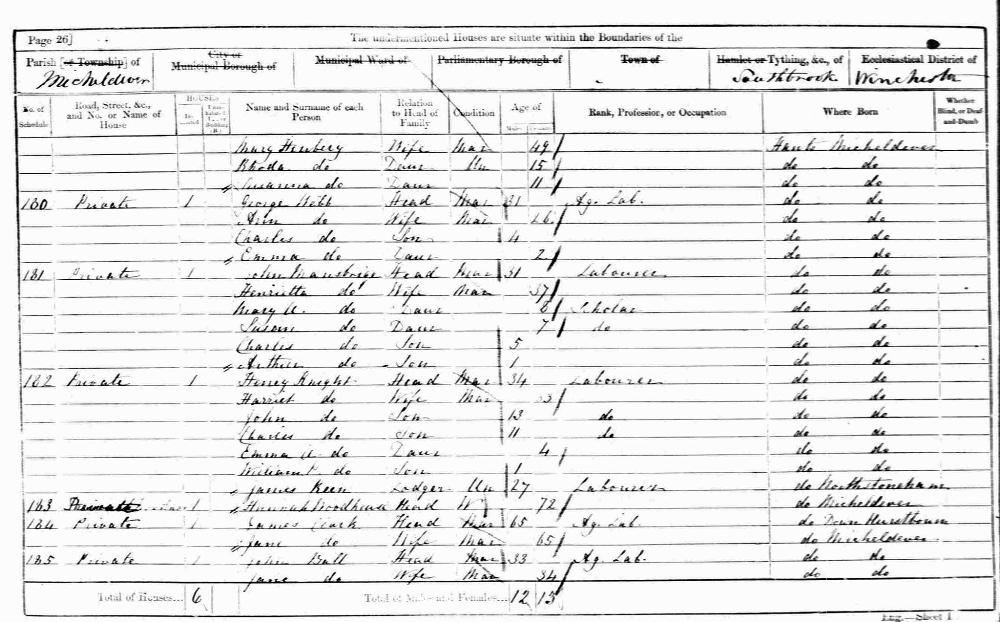 Page 26]
The undermentioned Houses are situate within the Boundaries of the
Parish [or Township] of Micheldever
City or Municipal Borough of
Municipal Ward of
Parliamentary Borough of
Town of
Hamlet or Tything, &c., of Southbrook
Ecclesiastical District of Winchester
No. of Schedule
Road, Street, &c., and No. or Name of House
HOUSES
Name and Surname of each Person
Relation to Head of Family
Condition
Age of
Rank, Profession, or Occupation
Where Born
Whether Blind, or Deaf-and-Dumb
Mary Wife Mar 49 Hants Micheldever
Rhoda do Daur Un 15 do do
Susanna do Daur 11 do do
180 Private 1 George Webb Head Mar 31 Ag. Lab. do do
Ann do Wife Mar 26 do do
Charles do Son 4 do do
Emma do Daur 2 do do
181 Private 1 John Mansbridge Head Mar 31 Labourer do do
Henrietta do Wife Mar 37 do do
Mary A. do Daur 8 Scholar do do
Susan do Daur 7 do do do
Charles do Son 5 do do
Arthur do Son 1 do do
182 Private 1 Henry Knight Head Mar 34 Labourer do do
Harriet do Wife Mar 33 do do
John do Son 13 do do do
Charles do Son 11 do do do
Emma A do Daur 4 do do
William do Son 1 do do
James Keen Lodger Un 27 Labourer do Northstoneham
183 1 Hannah Woodhouse Head W 72 do Micheldever
184 Private 1 James Clark Head Mar 65 Ag. Lab. do Down Hurstbourn
Jane do Wife Mar 65 do Micheldever
185 Private 1 John Ball Head Mar 33 Ag. Lab. do do
Jane do Wife Mar 34 do do
Total of Houses... 6 Total of Males and Females... 12 13
Eng.—Sheet I